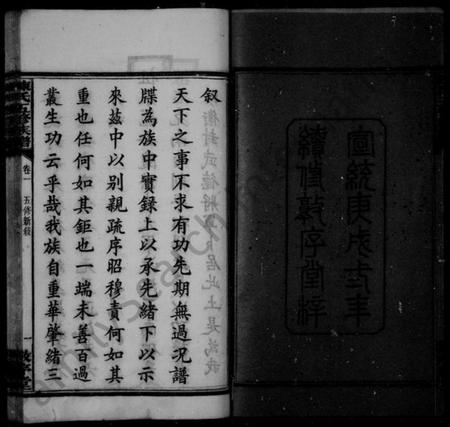 宣統庚戌年
續修敦序堂梓
叙
天下之事不求有功先期無過況譜
牒為族中實錄上以承先緒下以示
來茲中以別親疏序昭穆責何如其
重也任何如其鉅也一端未善百過
叢生功云乎哉我族自重華肇緒三
氏五修族譜
卷一
五修新叙
一
敦序堂